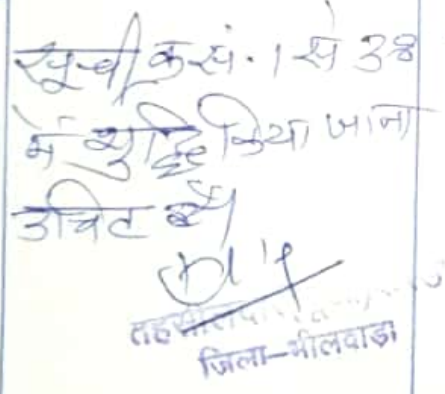 सूची क्र.सं. 1 से 38
में शुद्धि किया जाना
उचित है।
तहसीलदार
जिला-भीलवाड़ा